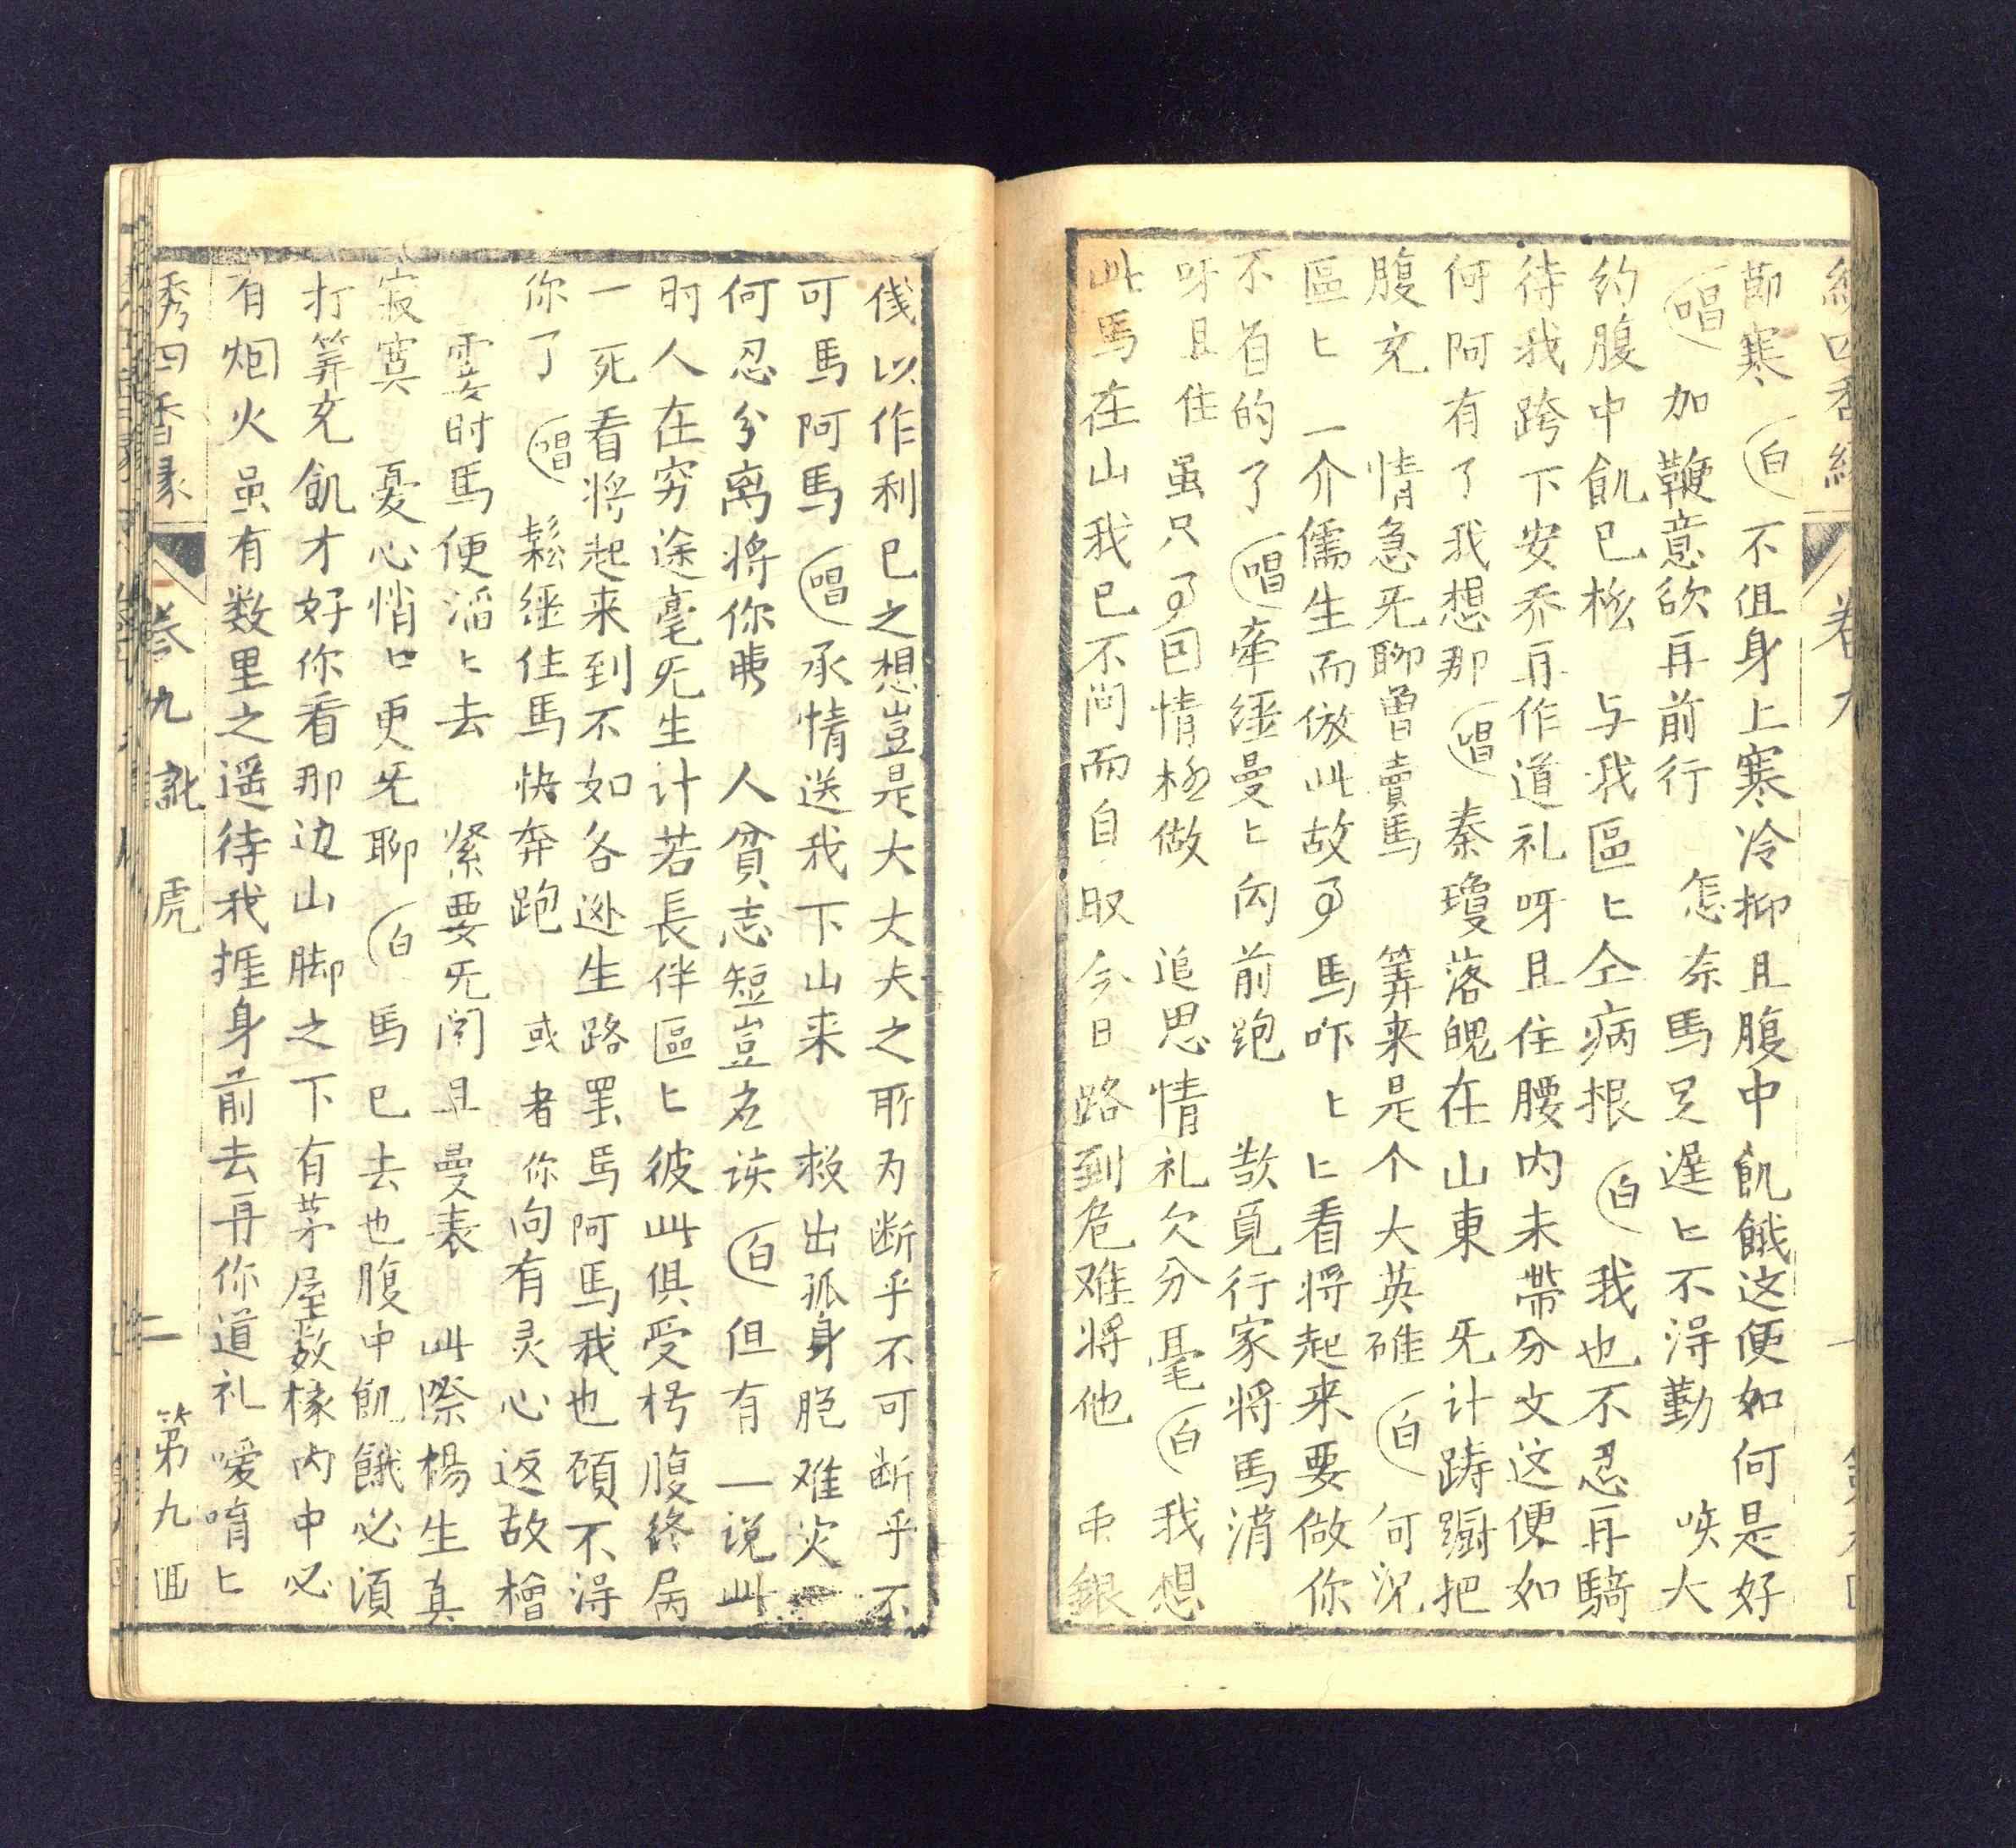 節寒 白 不但身上寒冷抑且腹中飢餓这便如何是好
唱 加鞭意欲再前行 怎奈馬足遅ヒ不淂勤 唉大
约腹中飢已极 与我區ヒ仝病根 白 我也不忍再騎
待我跨下安乔再作道礼呀且住腰内未帶分文这便如
何阿有了我想那 唱 秦瓊落魄在山東 旡计踌蹰把
腹充 情急旡聊曾賣馬 筭来是个大英碓 白 何况
區ヒ一介儒生而倣此故 馬咋ヒヒ看将起来要做你
不首的了 唱 牵繮曼ヒ向前跑 敖覓行家将馬消
呀且住 虽只 因情极做 追思情礼欠分毫 白 我想
此馬在山我已不问而自取今日路到危难将他 銀
伐以作利已之想豈是大大夫之所为断乎不可断乎不
可馬阿馬 唱 承情送我下山来 救出孤身脱难灾
何忍分离将你 人貧志短豈 白 但有一说此
时人在穷途毫旡生计若長伴區ヒ彼此俱受枵腹终属
一死看将起来到不如各逃生路罢馬阿馬我也顾不淂
你了 唱 鬆繮住馬快奔跑 或者你向有灵心返故槽
霎时馬便滔ヒ去 紧要旡闲且曼表 此際楊生真
寂寞 憂心悄ヒ更旡聊 白 馬已去也腹中飢餓必須
打筭充飢才好你看那边山脚之下有茅屋数椽内中必
有烟火虽有数里之遥待我捱身前去再你道礼嗳唷ヒ
秀四香缘 卷九 訛 虎 二 第九囬